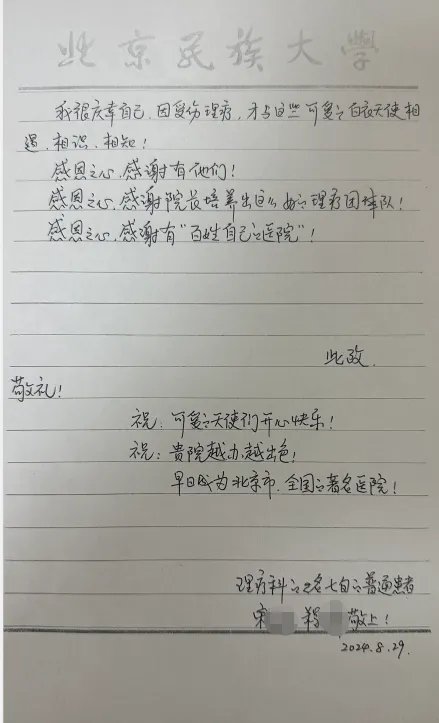 北京民族大学
我很庆幸自己,因受伤理疗,才与这些可爱的白衣天使相
遇、相识、相知!
感恩之心,感谢有他们!
感恩之心,感谢院长培养出这么好的理疗团体队!
感恩之心,感谢有"百姓自己的医院"!
此致
敬礼!
祝:可爱的天使们开心快乐!
祝:贵院越办越出色!
早日成为北京市、全国的著名医院!
理疗科的名七旬的普通患者
宋 敬上!
2024.8.29.